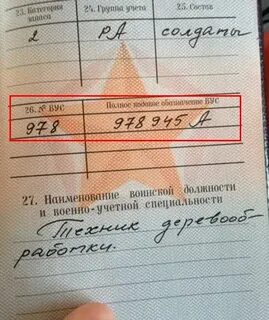 23. Категория запаса 24. Группа учета 25. Состав
2 РА солдаты
26. № ВУС Полное кодовое обозначение ВУС
978 978945 А
27. Наименование воинской должности
и военно-учетной специальности
Техник деревооб-
работки.